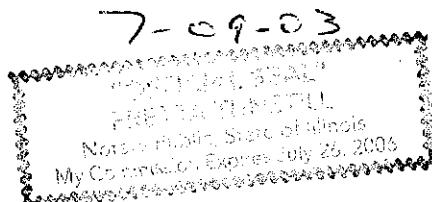 7-09-03
"OFFICIAL SEAL"
Notary Public, State of Illinois
My Commission Expires July 26, 2006